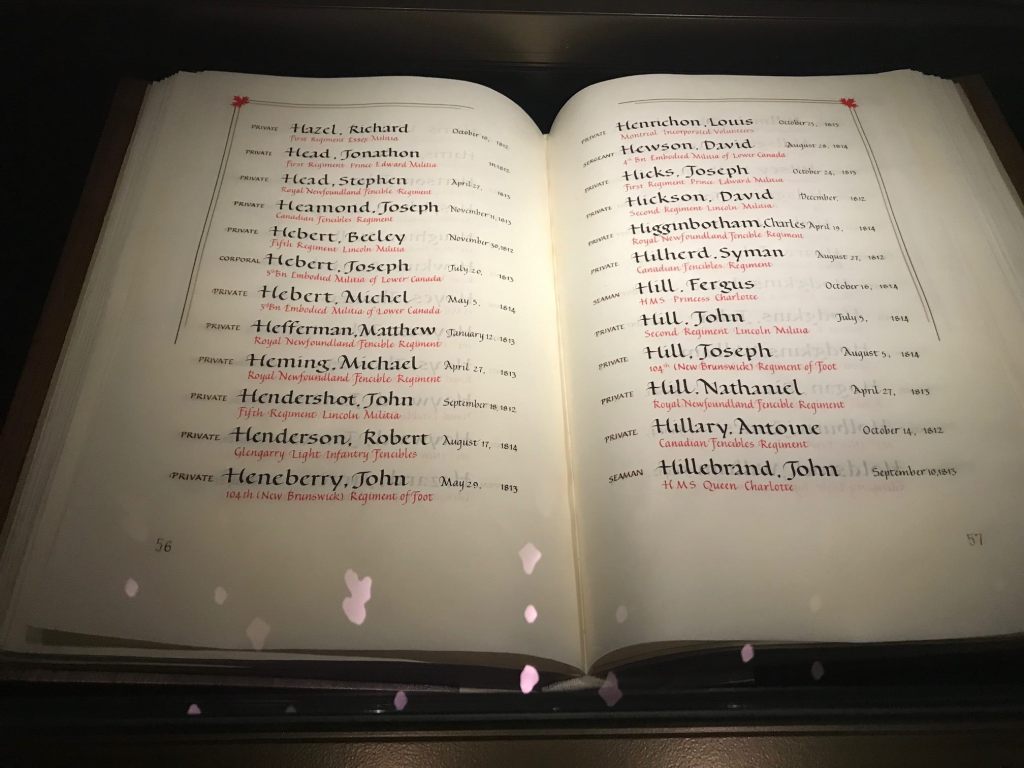 PRIVATE Hazel, Richard October 10, 1812
First Regiment Essex Militia
PRIVATE Head, Jonathon 1812
First Regiment Prince Edward Militia
PRIVATE Head, Stephen April 27, 1813
Royal Newfoundland Fencible Regiment
PRIVATE Heamond, Joseph November 11, 1813
Canadian Fencibles Regiment
PRIVATE Hebert, Becley November 30, 1812
Fifth Regiment Lincoln Militia
CORPORAL Hebert, Joseph July 20, 1813
5th Bn Embodied Militia of Lower Canada
PRIVATE Hebert, Michel May 5, 1814
5th Bn Embodied Militia of Lower Canada
PRIVATE Hefferman, Matthew January 12, 1813
Royal Newfoundland Fencible Regiment
PRIVATE Heming, Michael April 27, 1813
Royal Newfoundland Fencible Regiment
PRIVATE Hendershot, John September 18, 1812
Fifth Regiment Lincoln Militia
PRIVATE Henderson, Robert August 17, 1814
Glengarry Light Infantry Fencibles
PRIVATE Heneberry, John May 29, 1813
104th (New Brunswick) Regiment of Foot
56
PRIVATE Henrichon, Louis October 25, 1812
Montreal Incorporated Volunteers
SERGEANT Hewson, David August 28, 1814
4th Bn Embodied Militia of Lower Canada
PRIVATE Hicks, Joseph October 24, 1813
First Regiment Prince Edward Militia
PRIVATE Hickson, David December, 1812
Second Regiment Lincoln Militia
PRIVATE Higginbotham, Charles April 19, 1814
Royal Newfoundland Fencible Regiment
PRIVATE Hilherd, Syman August 27, 1812
Canadian Fencibles Regiment
SEAMAN Hill, Fergus October 16, 1814
HMS Princess Charlotte
PRIVATE Hill, John July 5, 1814
Second Regiment Lincoln Militia
PRIVATE Hill, Joseph August 5, 1814
104th (New Brunswick) Regiment of Foot
PRIVATE Hill, Nathaniel April 27, 1813
Royal Newfoundland Fencible Regiment
PRIVATE Hillary, Antoine October 14, 1812
Canadian Fencibles Regiment
SEAMAN Hillebrand, John September 10, 1813
HMS Queen Charlotte
57